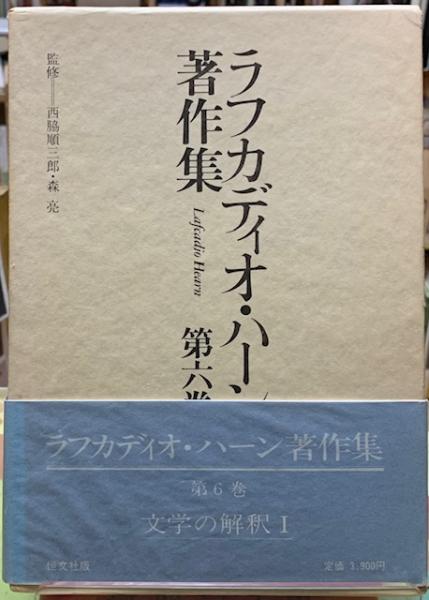 ラフカディオ・ハーン
著作集
Lafcadio Hearn
第六巻
監修──西脇順三郎・森 亮
ラフカディオ・ハーン著作集
第6巻
文学の解釈 I
恒文社版
定価 3,900円